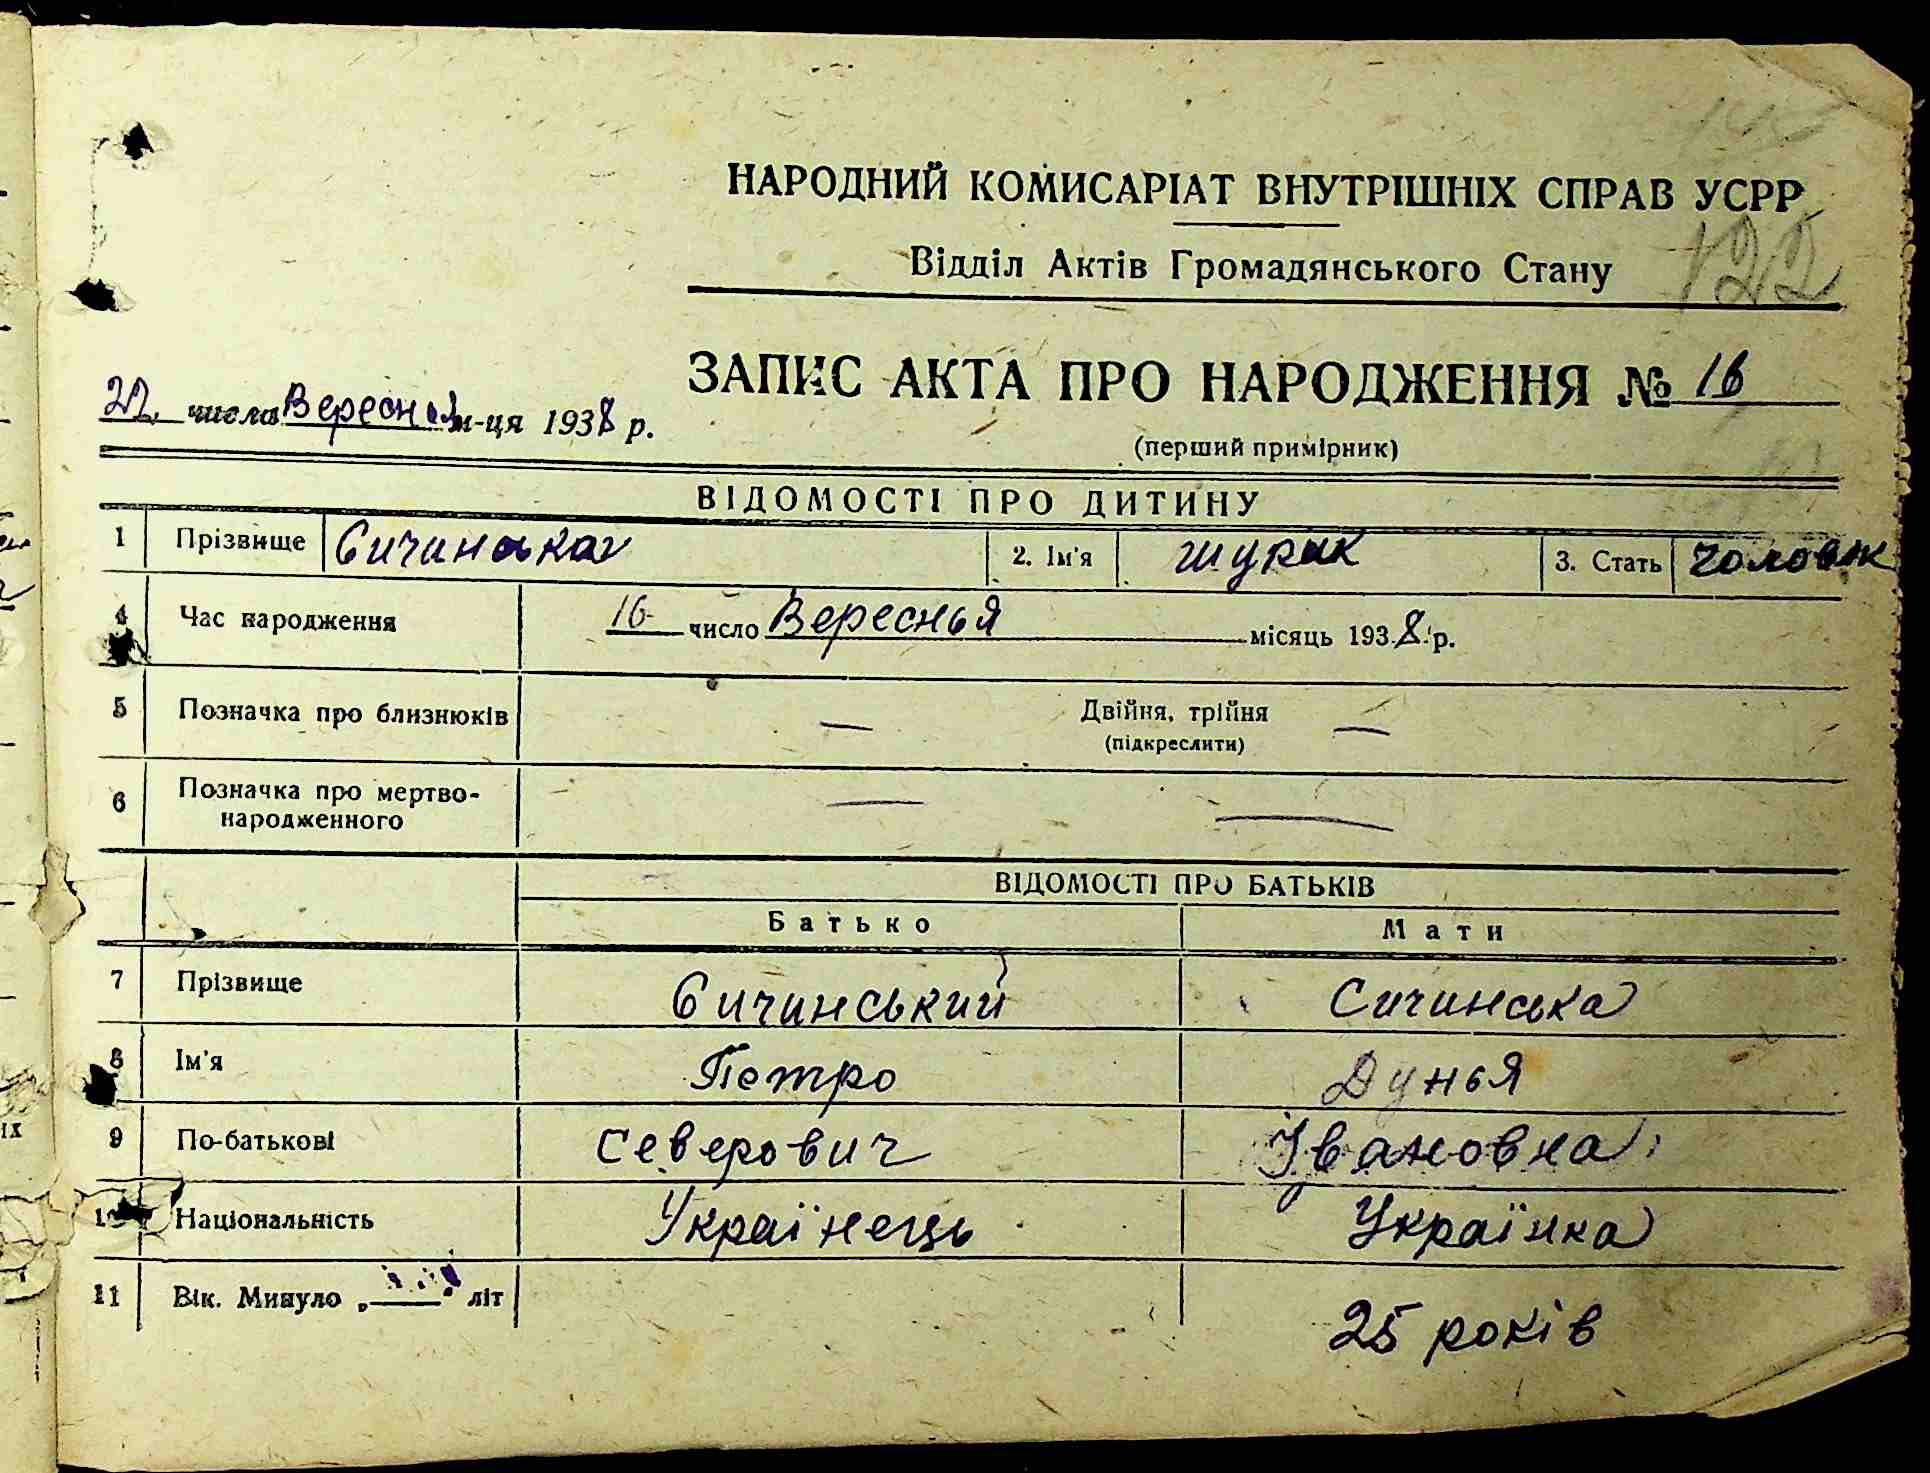 НАРОДНИЙ КОМИСАРІАТ ВНУТРІШНІХ СПРАВ УСРР
Відділ Актів Громадянського Стану
122
ЗАПИС АКТА ПРО НАРОДЖЕННЯ № 16
22 числа Вересня м-ця 1938 р.
(перший примірник)
ВІДОМОСТІ ПРО ДИТИНУ
1 Прізвище Сичинська 2. Ім'я Шурик 3. Стать чоловік
4 Час народження 16 число Вереснья місяць 1938 р.
5 Позначка про близнюків — Двійня, трійня —
(підкреслити)
6 Позначка про мертво-
народженного — —
ВІДОМОСТІ ПРО БАТЬКІВ
Батько Мати
7 Прізвище Сичинський Сичинська
8 Ім'я Петро Дунья
9 По-батькові Северович Івановна
10 Національність Українець Українка
11 Вік. Минуло „ " літ 25 років